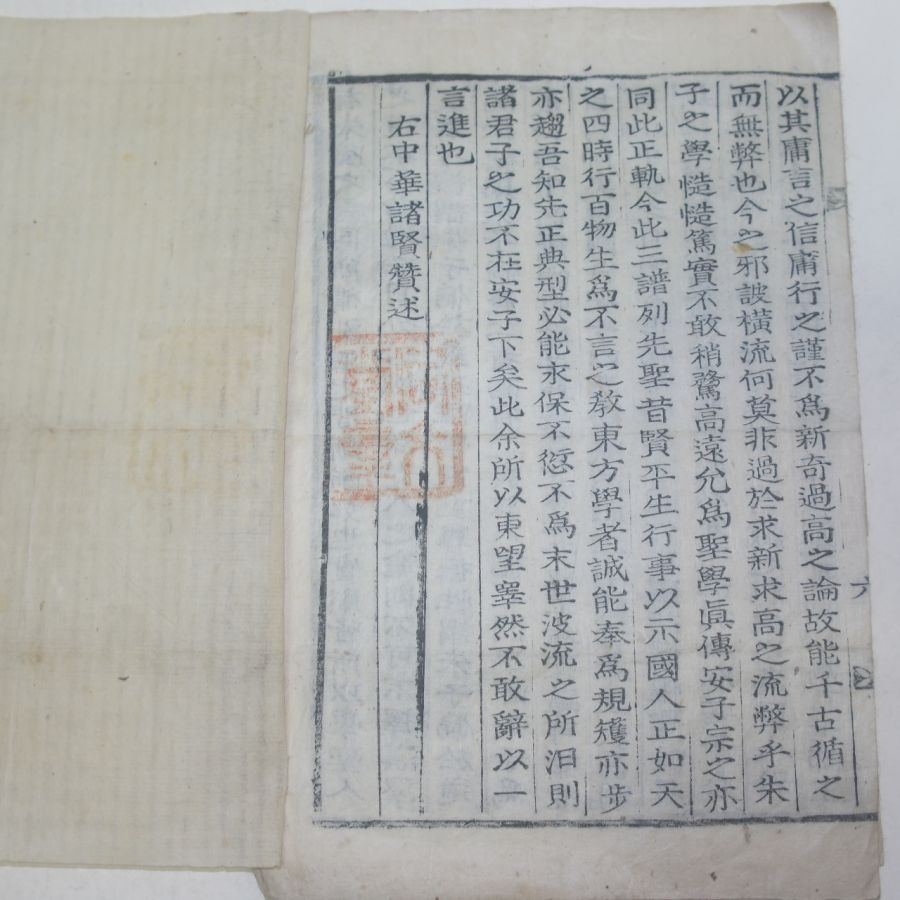 以其庸言之信庸行之謹不爲新奇過高之論故能千古循之
而無弊也今之邪詖橫流何莫非過於求新求高之流弊乎朱
子之學慥慥篤實不敢稍騖高遠允爲聖學眞傳安子宗之亦
同此正軌今此三譜列先聖昔賢平生行事以示國人正如天
之四時行百物生爲不言之敎東方學者誠能奉爲規矱亦步
亦趨吾知先正典型必能永保不愆不爲末世波流之所汨則
諸君子之功不在安子下矣此余所以東望睾然不敢辭以一
言進也
右中華諸賢贊述
六